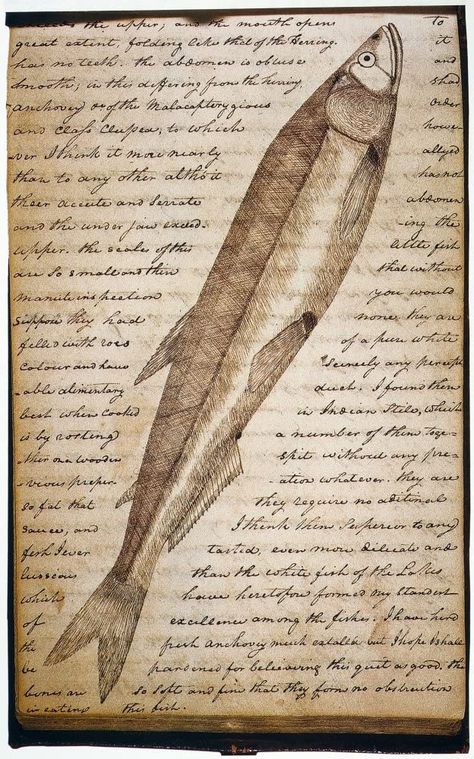 the upper; and the mouth opens To
great extent, folding like that of the Herring. it
has no teeth. the abdomen is obuse and
smooth; in this differing from the herring, shad
anchovey &c of the Malacapterygious order
and Class Clupea, to which howe-
ver I think it more nearly allyed
than to any other altho' it has not
their accute and serrate abdomen
and the under jaw exceed- ing the
upper. the scales of this little fish
are so small and thin that without
manute inspection you would
suppose they had none. they are
filled with roes of a pure white
colour and have scercely any percept-
able alimentary duct. I found them
best when cooked in Indian Stile, which
is by roasting a number of them toge-
ther on a wooden spit without any pre-
vious prepar- ation whatever. they are
so fat that they require no aditional
sauce, and I think them superior to any
fish I ever tasted, even more dilicate and
lussious than the white fish of the Lakes
which have heretofore formed my standart
of excellence among the fishes. I have herd
the fresh anchovey much extolled but I hope I shall
be pardened for believing this quit as good. the
bones are so soft and fine that they form no obstruction
in eating this fish.